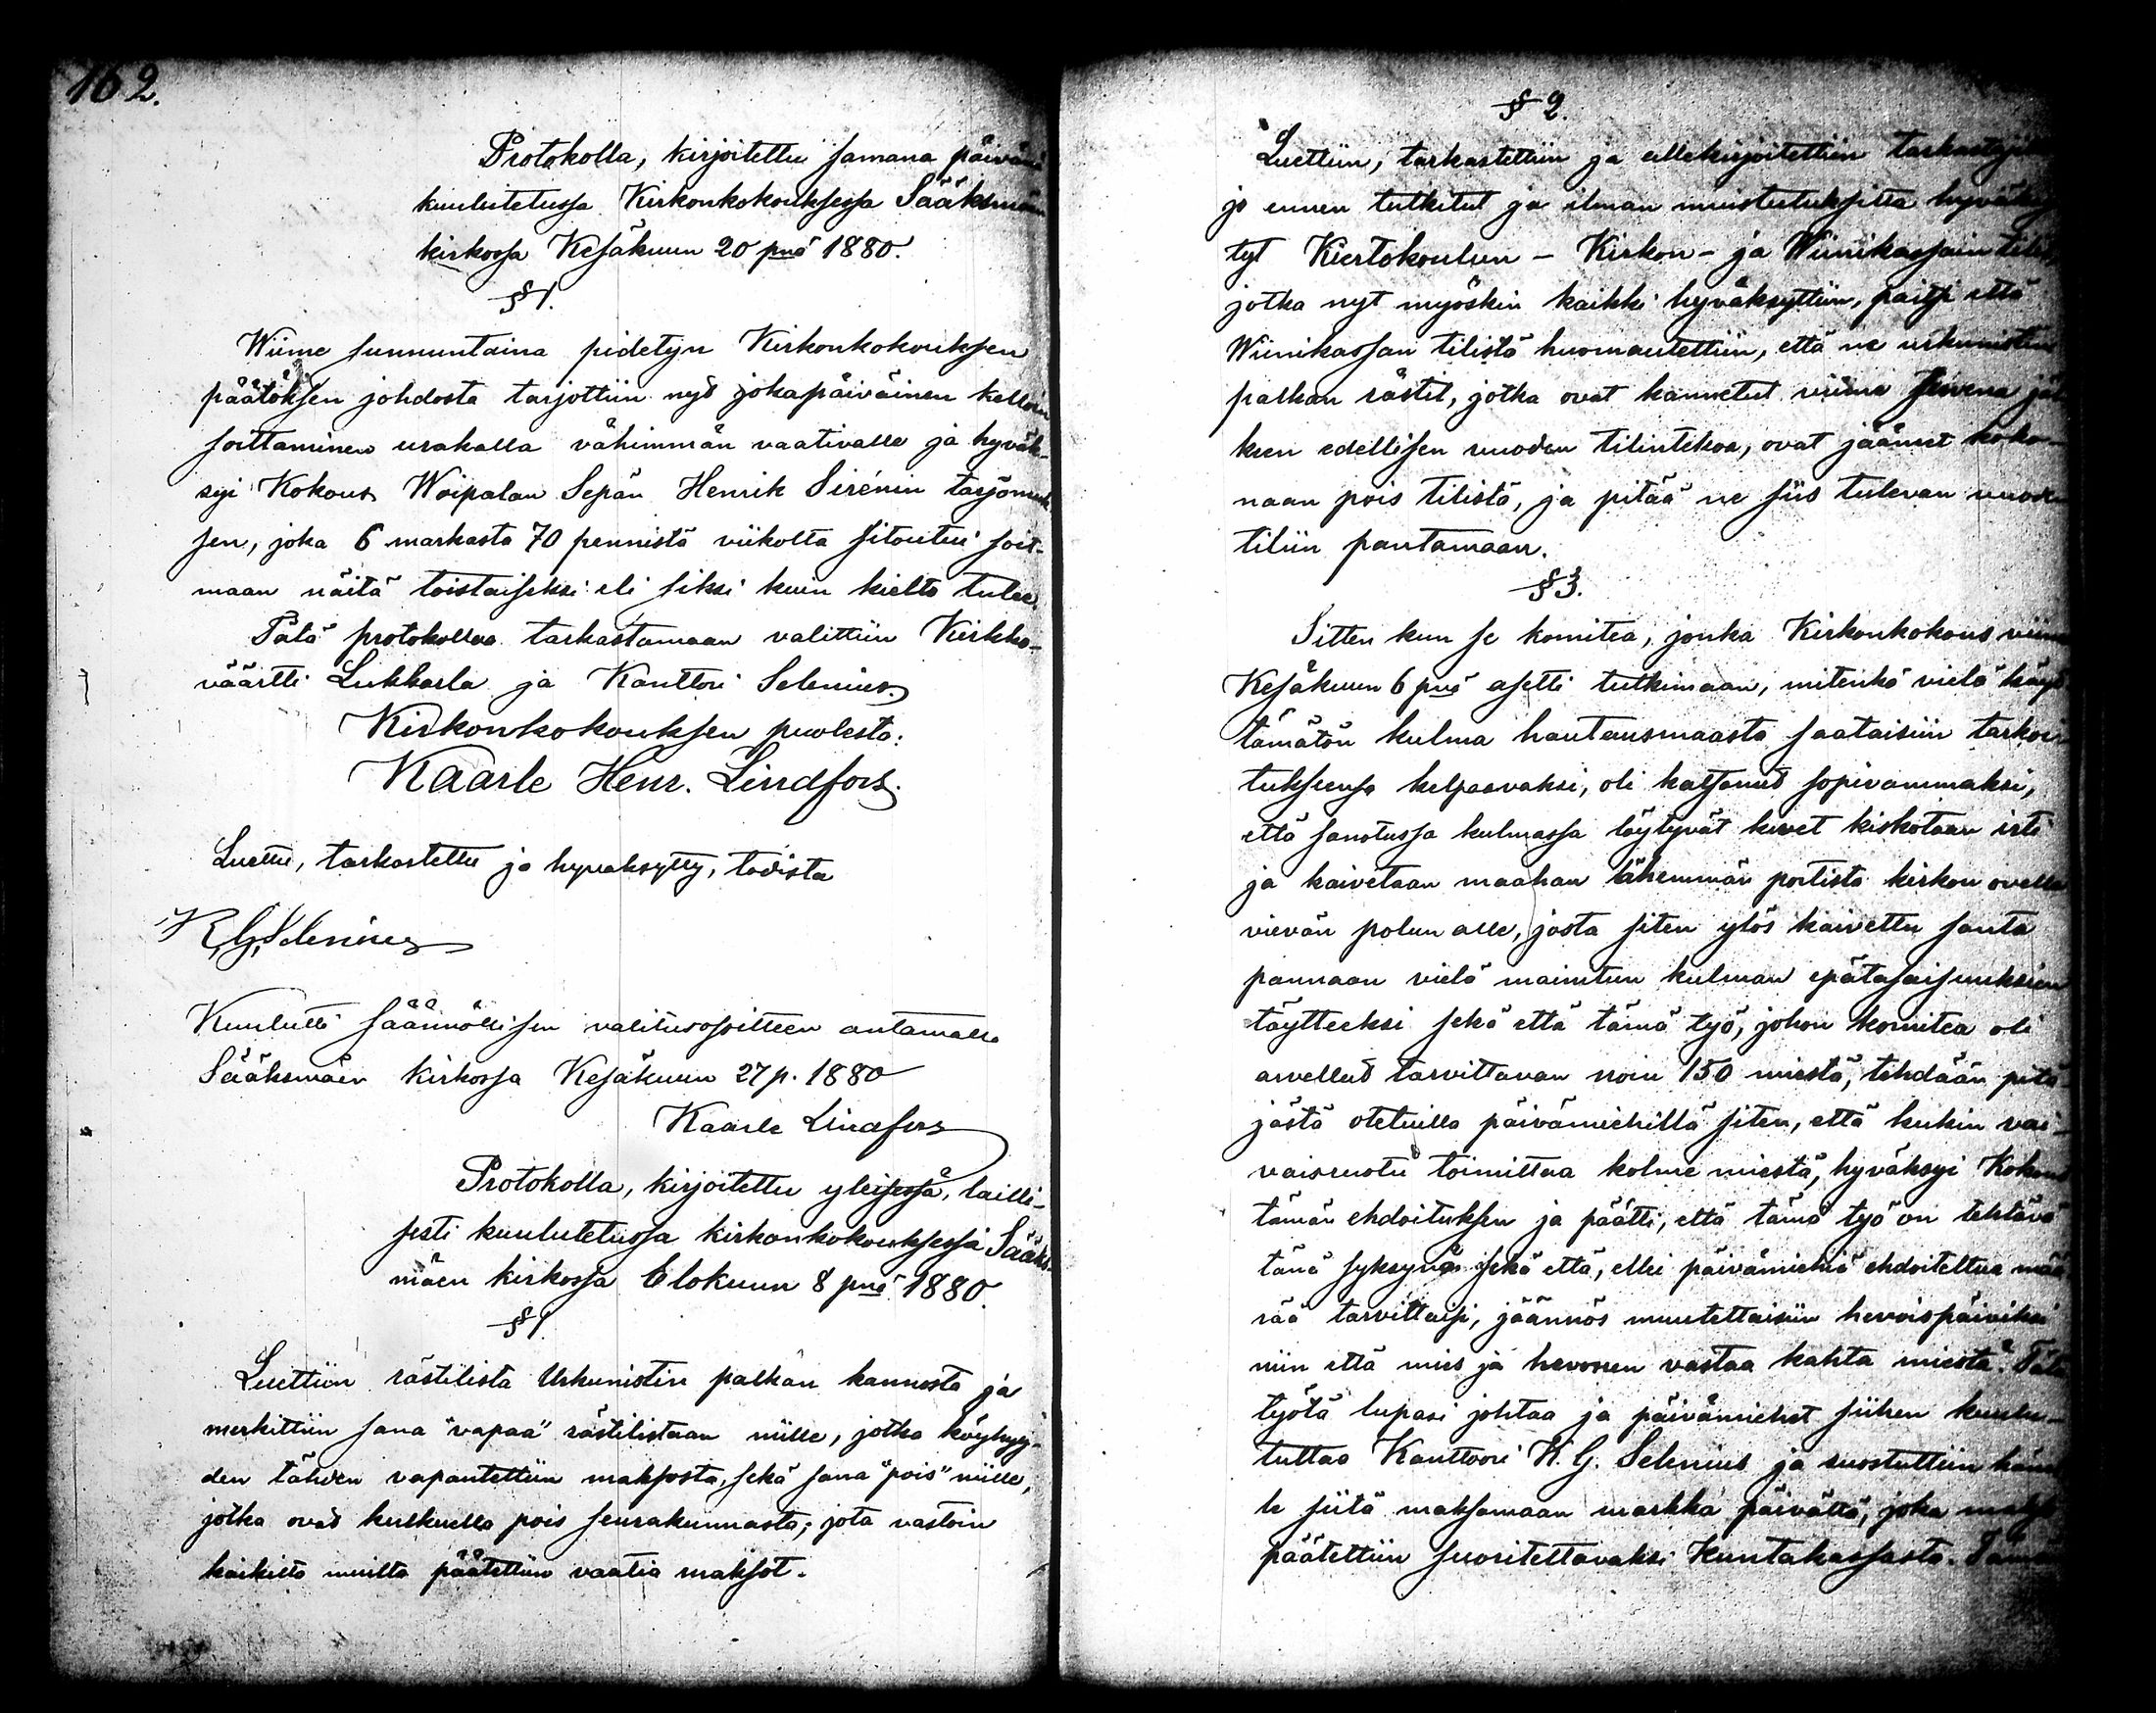 162.
Protokolla, kirjoitettu samana päivänä
kuulutetussa Kirkonkokouksessa Sääksmäen
kirkossa Kesäkuun 20 pnä 1880.
§ 1.
Wiime sunnuntaina pidetyn Kirkonkokouksen
päätöksen johdosta tarjottiin nyt jokapäiväinen kellon
soittaminen urakalla vähimmän vaativalle ja hyväk-
syi Kokous Woipalan Sepän Henrik Sirénin tarjomuk
sen, joka 6 markasta 70 pennistä viikolta sitoutui soit-
maan näitä toistaiseksi eli siksi kuin kielto tulee.
Tätä protokollaa tarkastamaan valittiin Kirkko-
väärtti Lukkarla ja Kanttori Selenius.
Kirkonkokouksen puolesta:
Kaarle Henr. Lindfors.
Luettu, tarkastettu ja hyväksytty, todista
K. G. Selenius
Kuulutti säännöllisen valitusosoitteen antamalla
Sääksmäen kirkossa Kesäkuun 27 p. 1880
Kaarle Lindfors
Protokolla, kirjoitettu yleisessä, lailli-
sesti kuulutetussa kirkonkokouksessa Sääks-
mäen kirkossa Elokuun 8 pnä 1880.
§ 1.
Luettiin rästilista Urkunistin palkan kannosta ja
merkittiin sana "vapaa" rästilistaan niille, jotka köyhyy-
den tähden vapautettiin maksosta, sekä sana "pois" niille,
jotka ovat kulkuella pois seurakunnasta; jota vastoin
kaikilta muilta päätettiin vaatia maksot.
§ 2.
Luettiin, tarkastettiin ja allekirjoitettiin
jo ennen tutkitut ja ilman muistutuksitta hyväksy
tyt Kiertokoulun - Kirkon - ja Wiinikassain tilit,
jotka nyt myöskin kaikki hyväksyttiin, paitsi että
Wiinikassan tilistä huomautettiin, että ne urkunistin
palkan rästit, jotka ovat kannetut viime talvena jäl
keen edellisen vuoden tilintekoa, ovat jääneet koko-
naan pois tilistä, ja pitää ne siis tulevan vuoden
tiliin pantamaan.
§ 3.
Sitten kun se komitea, jonka Kirkonkokous viime
Kesäkuun 6 pnä asetti tutkimaan, mitenkä vielä käyt
tämätön kulma hautausmaasta saataisiin tarkoi
tukseensa kelpaavaksi, oli katsonut sopivammaksi,
että sanotussa kulmassa löytyvät kivet kiskotaan irti
ja kaivetaan maahan lähemmän portista kirkon ovelle
vievän polun alle, josta siten ylös kaivettu santa
pannaan vielä mainitun kulman epätasaisuuksien
täytteeksi sekä että tämä työ, johon komitea oli
arvellut tarvittavan noin 150 miestä, tehdään pitä
jästä otetuilla päivämiehillä siten, että kukin vai-
vaisruotu toimittaa kolme miestä, hyväksyi Kokous
tämän ehdoituksen ja päätti, että tämä työ on tehtävä
tänä syksynä sekä että, ellei päivämiehiä ehdoiteltua mää
rää tarvittaisi, jäännös muutettaisiin hevoispäiviksi
niin että mies ja hevonen vastaa kahta miestä. Tätä
työtä lupasi johtaa ja päivämiehet siihen kuulu-
tuttaa Kanttori K. G. Selenius ja suostuttiin hänel
le siitä maksamaan markka päivältä, joka makso
päätettiin suoritettavaksi Kuntakassasta. Tämän